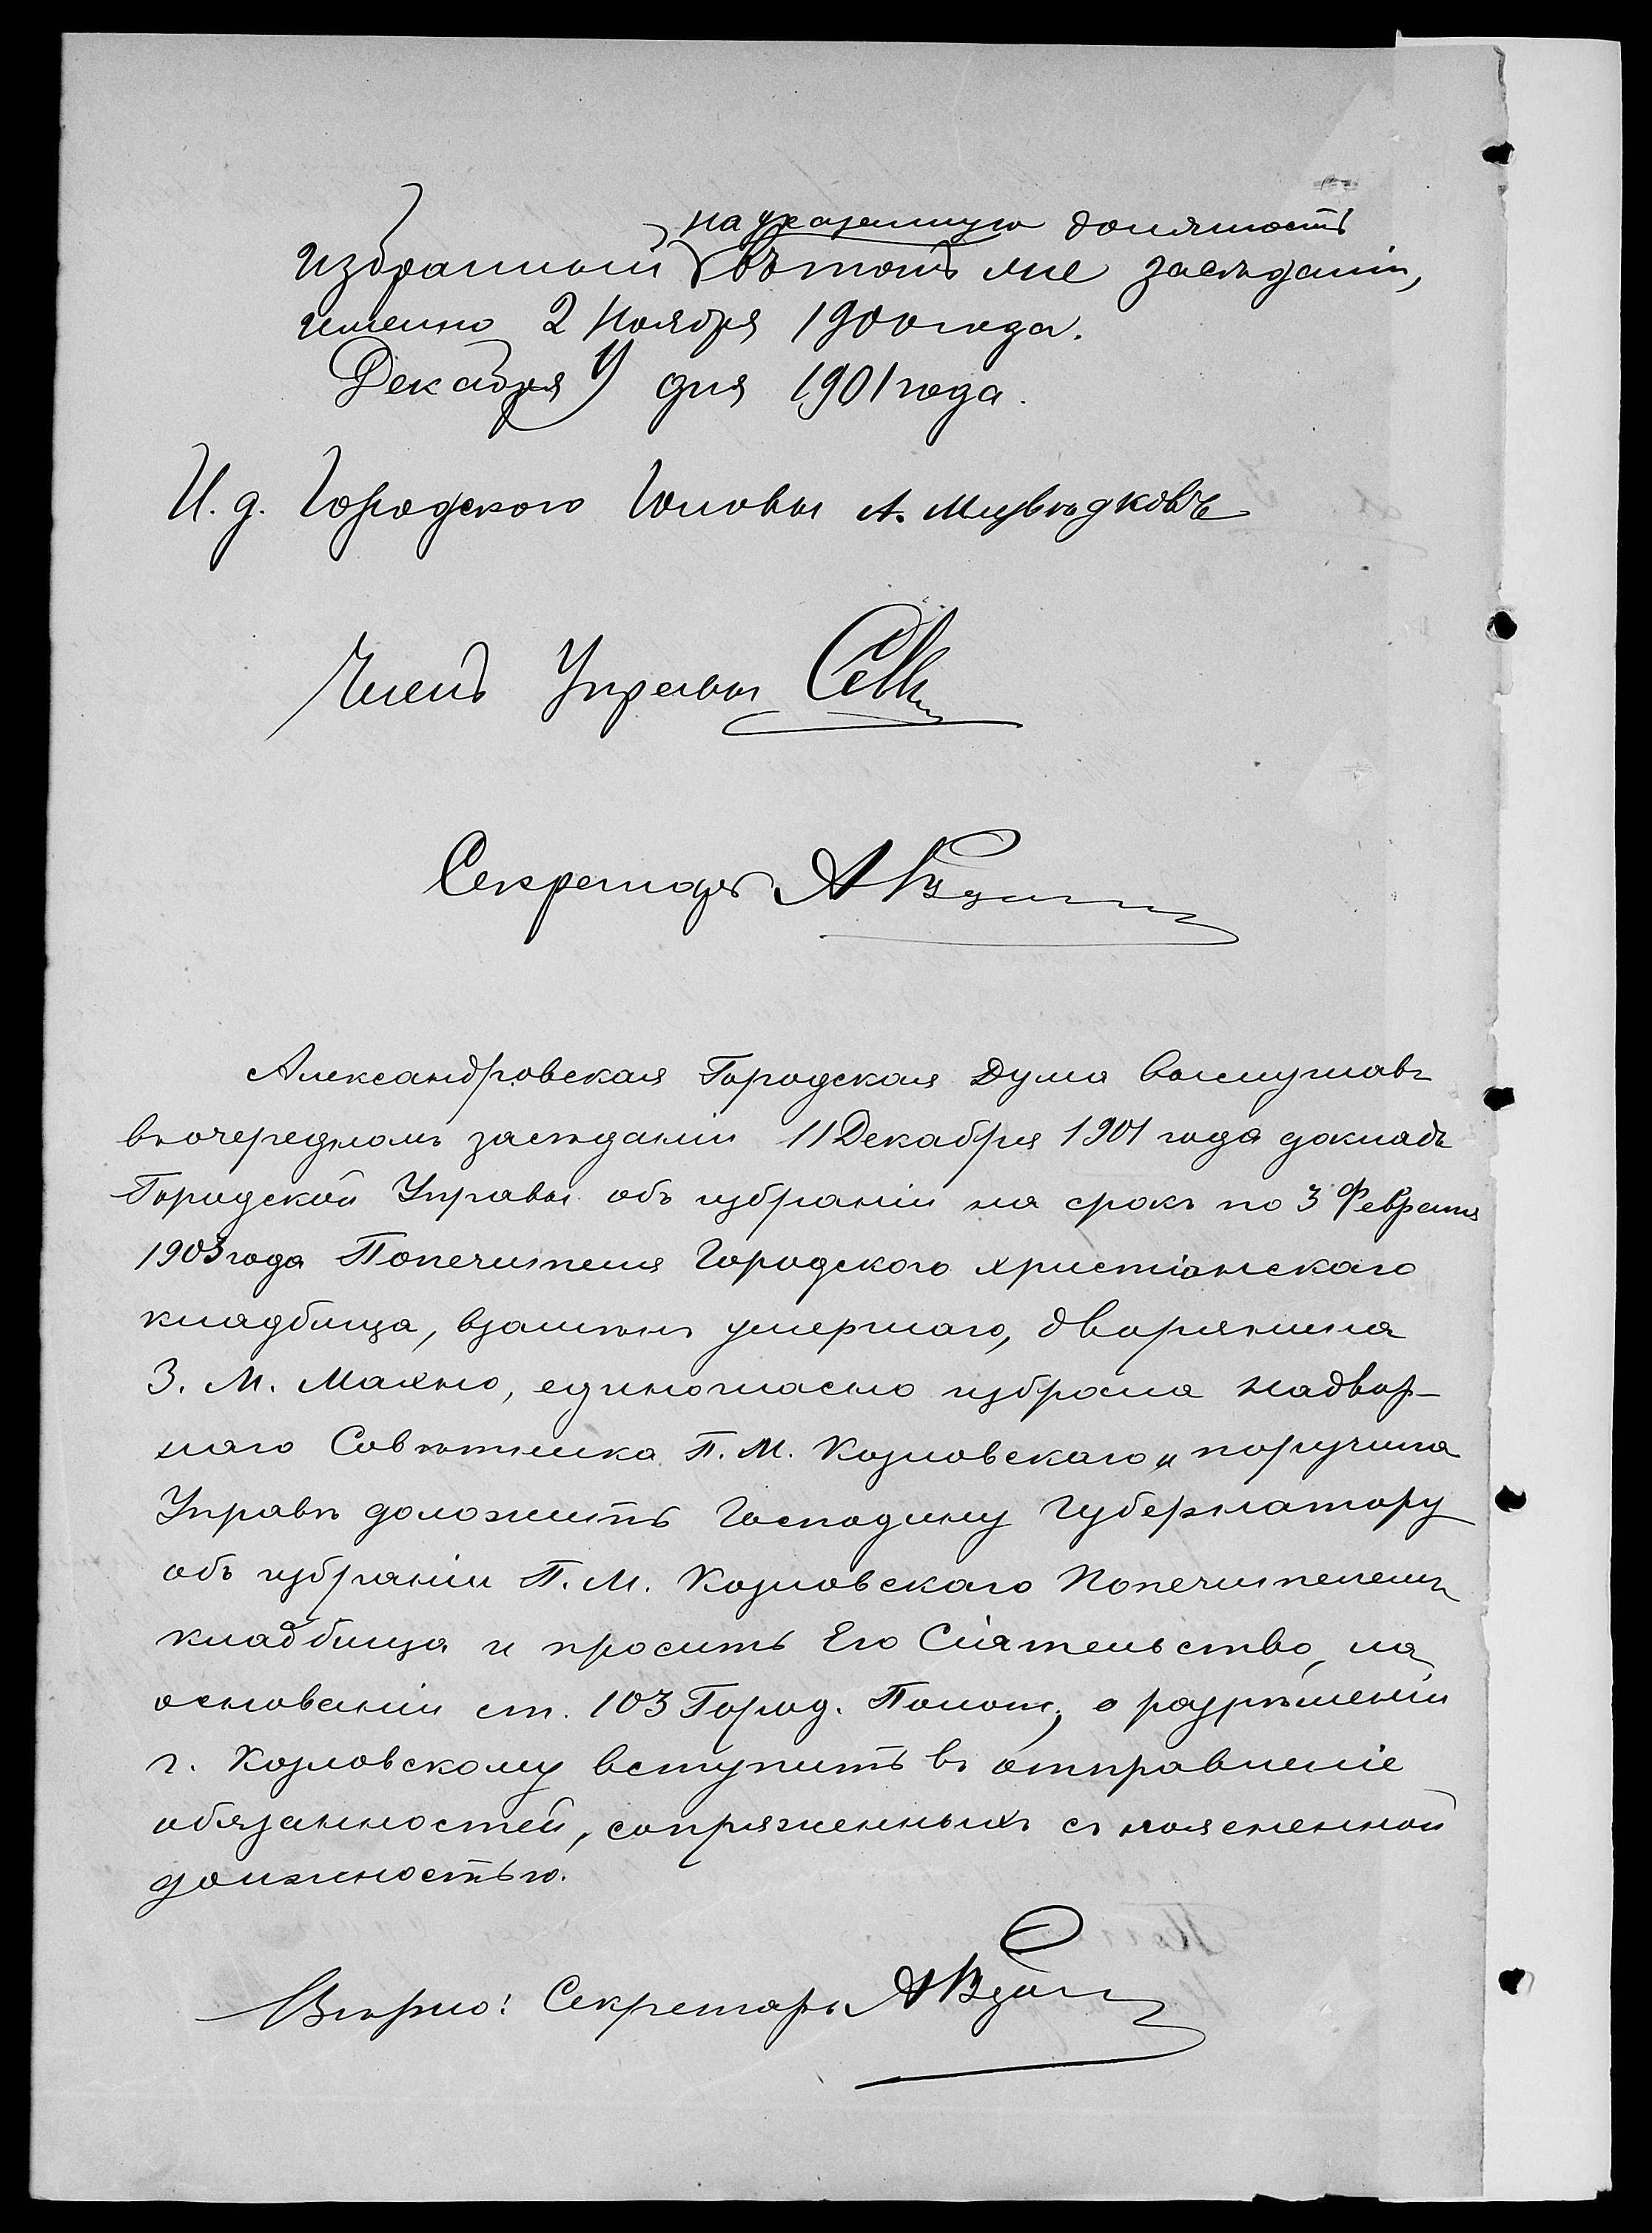 на указанную должность
избранный въ томъ же засѣданіи,
именно 2 Ноября 1900 года.
Декабря 9 дня 1901 года.
И. д. Городского Головы А. Медвѣдковъ
Членъ Управы
Секретарь А
Александровская Городская Дума выслушавъ
въ очередномъ засѣданіи 11 Декабря 1901 года докладъ
Городской Управы объ избраніи на срокъ по 3 Февраля
1903 года Попечителя Городского христіанскаго
кладбища, взамѣнъ умершаго, дворянина
З. М. Махно, единогласно избрала надвор-
наго Совѣтника П. М. Козловскаго и поручила
Управѣ доложить Господину Губернатору
объ избраніи П. М. Козловскаго Попечителемъ
кладбища и просить Его Сіятельство, на
основаніи ст. 103 Город. Полож., о разрѣшеніи
г. Козловскому вступить въ отправленіе
обязанностей, сопряженныхъ съ поясненной
должностью.
Вѣрно: Секретарь А